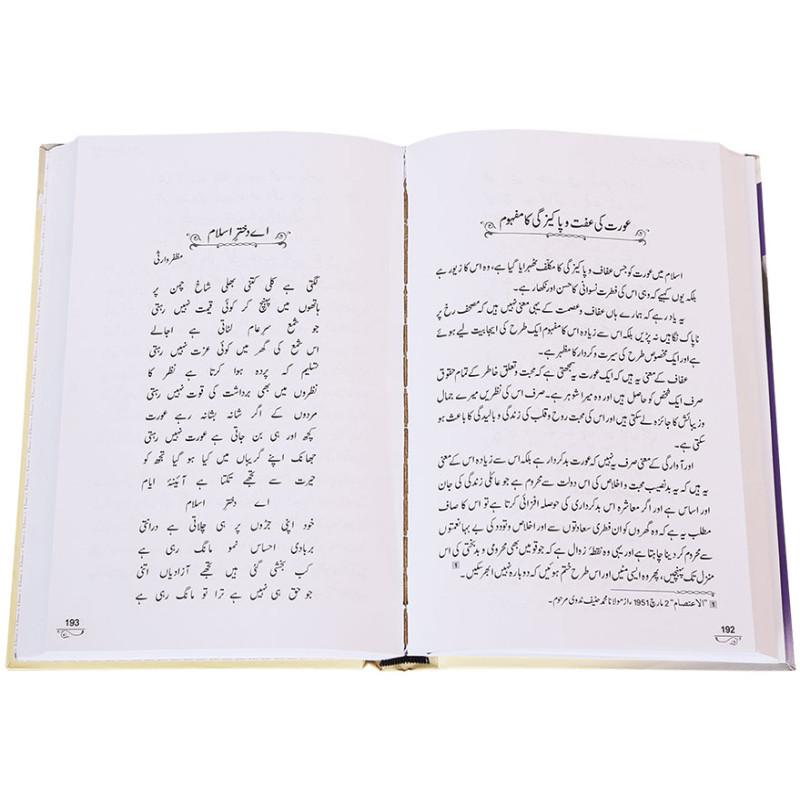 عورت کی عفت و پاکیزگی کا مفہوم
اسلام میں عورت کو جس عفاف و پاکیزگی کا مکلف ٹھہرایا گیا ہے، وہ اس کا زیور ہے
بلکہ یوں کہیے کہ وہی اس کی فطرت نسوانی کا حسن اور نکھار ہے۔
یہ یاد رہے کہ ہمارے ہاں عفاف و عصمت کے یہی معنی نہیں ہیں کہ مصحف رخ پر
ناپاک نگاہیں نہ پڑیں بلکہ اس سے زیادہ اس کا مفہوم ایک طرح کی ایجابیت لیے ہوئے
ہے اور ایک مخصوص طرح کی سیرت و کردار کا مظہر ہے۔
عفاف کے معنی یہ ہیں کہ ایک عورت یہ سمجھتی ہے کہ محبت و تعلق خاطر کے تمام حقوق
صرف ایک شخص کو حاصل ہیں اور وہ میرا شوہر ہے۔ صرف اس کی نظریں میرے جمال
و زیبائش کا جائزہ لے سکتی ہیں اور اس کی محبت روح و قلب کی زندگی و بالیدگی کا باعث ہو
سکتی ہے۔
اور آوارگی کے معنی صرف یہ نہیں کہ عورت بدکردار ہے بلکہ اس سے زیادہ اس کے معنی
یہ ہیں کہ یہ بدنصیب محبت و اخلاص کی اس دولت سے محروم ہے جو عائلی زندگی کی جان
اور اساس ہے اور اگر معاشرہ اس بدکرداری کی حوصلہ افزائی کرتا ہے تو اس کا صاف
مطلب یہ ہے کہ وہ گھروں کو ان فطری سعادتوں سے اور اخلاص و تودد کی بے بہا نعمتوں
سے محروم کر دینا چاہتا ہے اور یہی وہ نقطۂ زوال ہے کہ جو قومیں بھی محرومی و بدبختی کی اس
منزل تک پہنچیں، پھر وہ ایسی مٹیں اور اس طرح ختم ہوئیں کہ دوبارہ نہیں ابھر سکیں۔ 1
1 ”الاعتصام“ 2 مارچ 1951ء از مولانا محمد حنیف ندوی مرحوم۔
192
اے دختر اسلام
مظفر وارثی
لگتی ہے کلی کتنی بھلی شاخ چمن پر
ہاتھوں میں پہنچ کر کوئی قیمت نہیں رہتی
جو شمع سرعام لٹاتی ہے اجالے
اس شمع کی گھر میں کوئی عزت نہیں رہتی
تسلیم کہ پردہ ہوا کرتا ہے نظر کا
نظروں میں بھی برداشت کی قوت نہیں رہتی
مردوں کے اگر شانہ بشانہ رہے عورت
کچھ اور ہی بن جاتی ہے عورت نہیں رہتی
جھانک اپنے گریباں میں کیا ہو گیا تجھ کو
حیرت سے تجھے تکتا ہے آئینۂ ایام
اے دختر اسلام
خود اپنی جڑوں پر ہی چلاتی ہے درانتی
بربادی احساس نمو مانگ رہی ہے
کب بخشی گئی ہیں تجھے آزادیاں اتنی
جو حق ہی نہیں ہے ترا تو مانگ رہی ہے
193